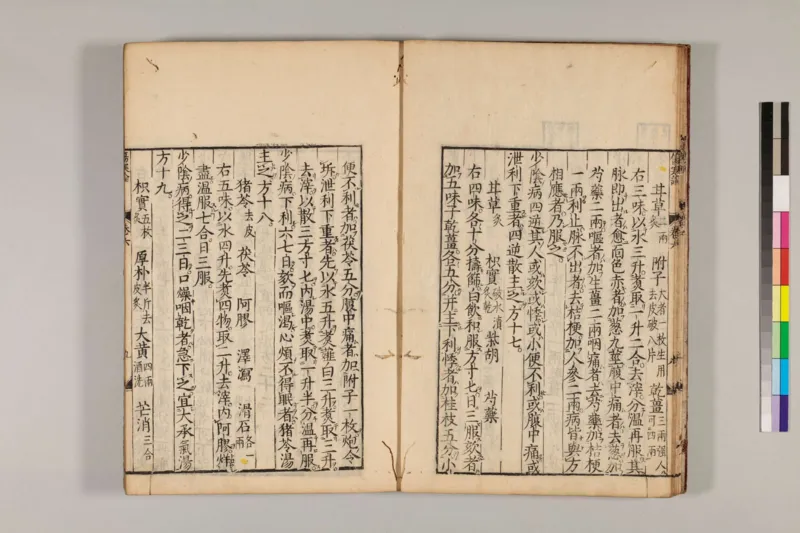 甘草炙二兩 附子大者一枚生用去皮破八片 乾薑三兩強人可四兩
右三味以水三升煑取一升二合去滓分温再服其
脉即出者愈面色赤者加葱九莖腹中痛者去葱加
芍藥二兩嘔者加生薑二兩咽痛者去芍藥加桔梗
一兩利止脉不出者去桔梗加人參二兩病皆與方
相應者乃服之
少陰病四逆其人或欬或悸或小便不利或腹中痛或
泄利下重者四逆散主之方十七
甘草炙 枳實破水漬炙乾 柴胡 芍藥
右四味各十分擣篩白飲和服方寸七日三服欬者
加五味子乾薑各五分并主下利悸者加桂枝五分小
便不利者加茯苓五分腹中痛者加附子一枚炮令
坼泄利下重者先以水五升煑薤白三升煑取三升
去滓以散三方寸七内湯中煑取一升半分温再服
少陰病下利六七日欬而嘔渴心煩不得眠者猪苓湯
主之方十八
猪苓去皮 茯苓 阿膠 澤瀉 滑石各一兩
右五味以水四升先煑四物取二升去滓内阿膠烊
盡温服七合日三服
少陰病得之二三日口燥咽乾者急下之宜大承氣湯
方十九
枳實五枚炙 厚朴半斤去皮炙 大黄四兩酒洗 芒消三合